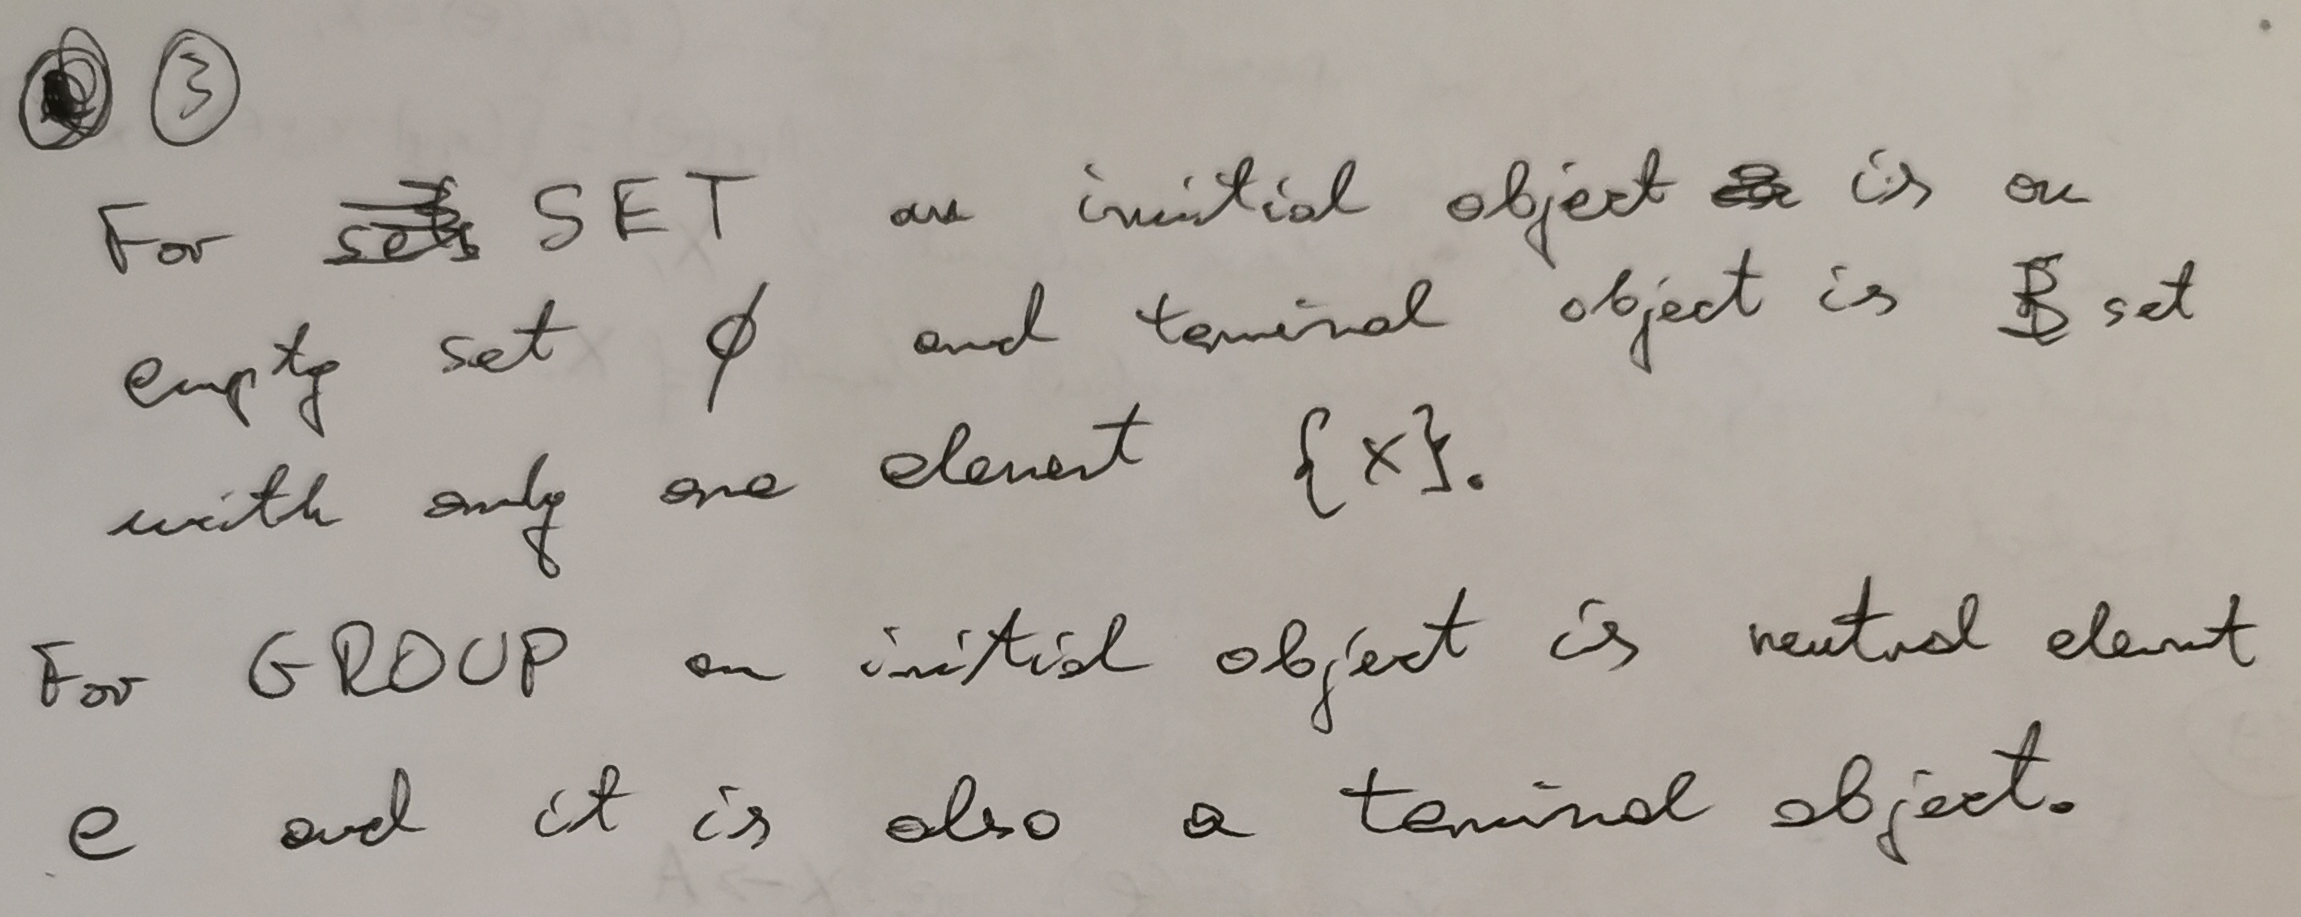 ③
For SET an initial object is an
empty set ∅ and terminal object is set
with only one element {x}.
For GROUP an initial object is neutral element
e and it is also a terminal object.